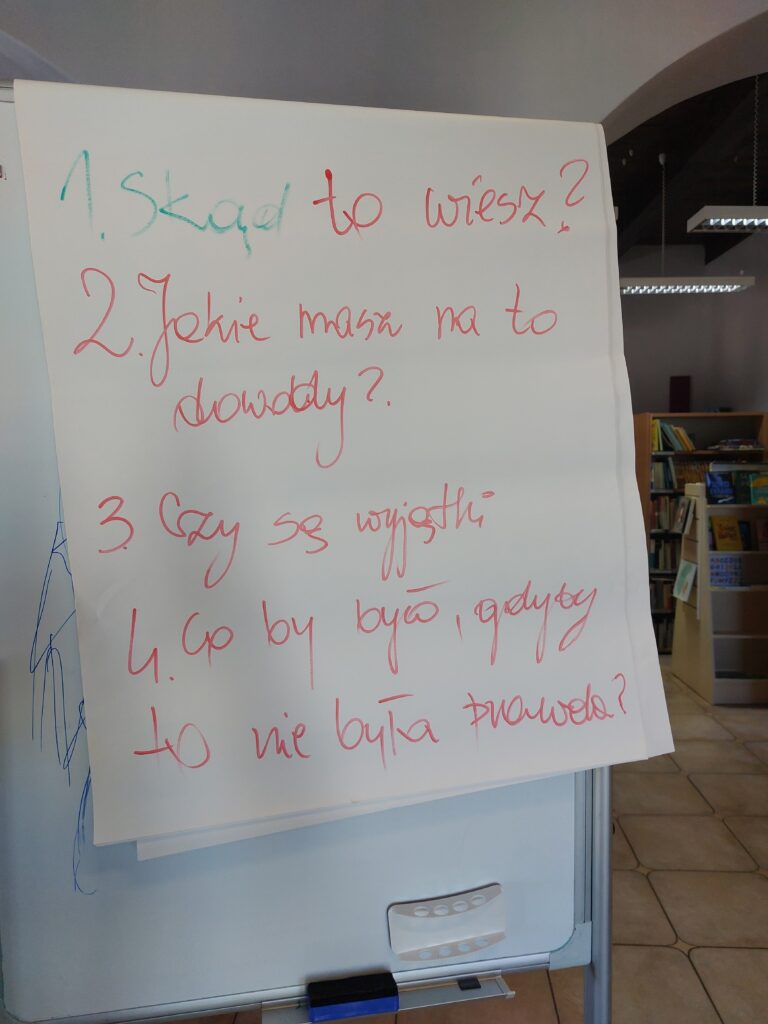 1. Skąd to wiesz?
2. Jakie masz na to
dowody?
3. Czy są wyjątki
4. Co by było, gdyby
to nie była prawda?